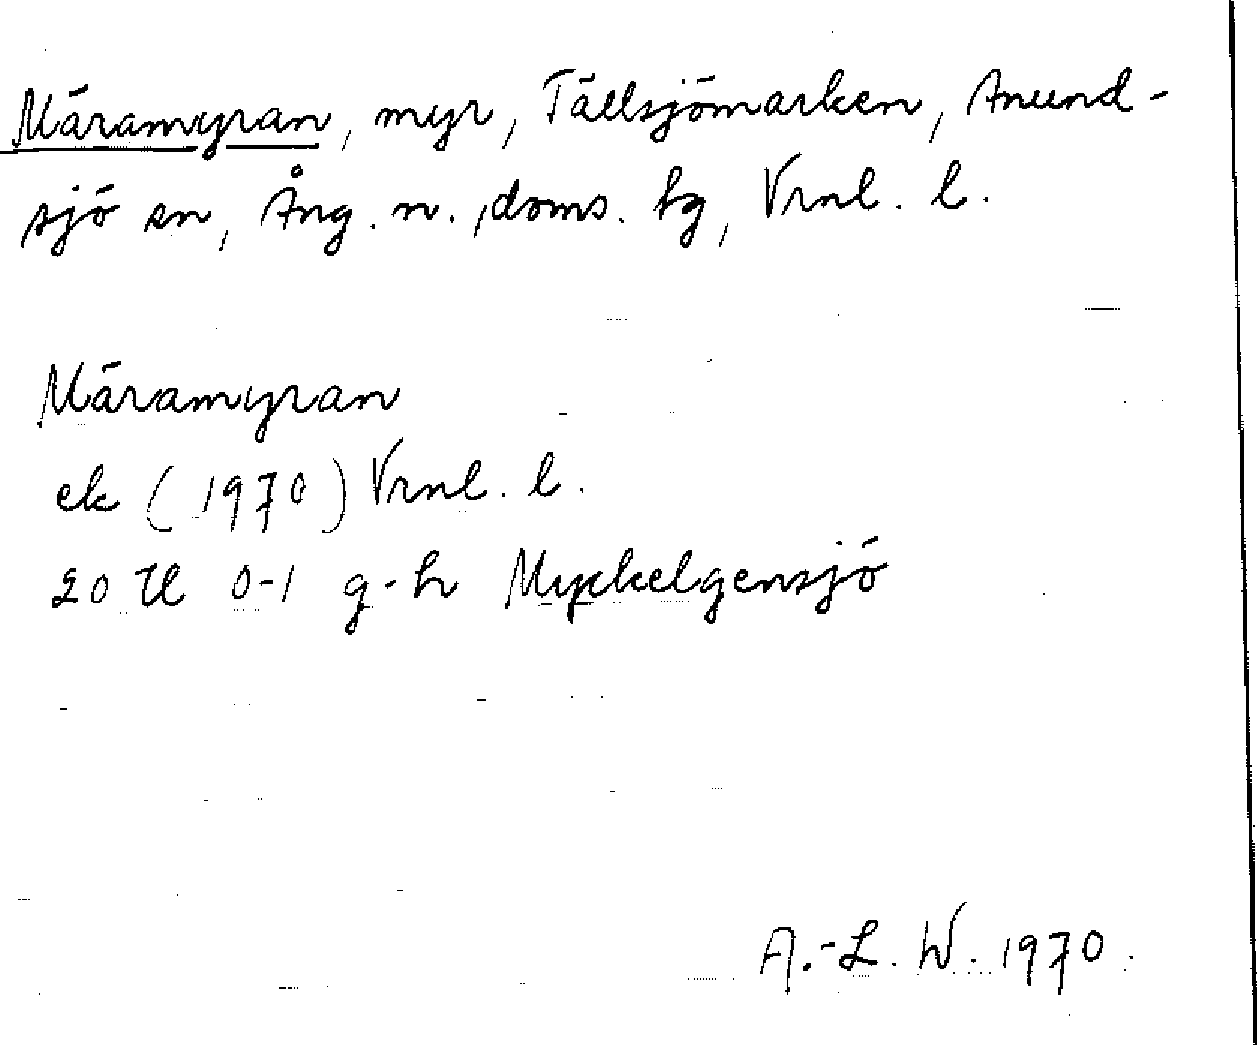 Märamyran, myr, Tällsjömarken, Anund-
sjö sn, Ång. n. doms. hg, Vrnl. l.
Märamyran
ek (1970) Vrnl. l.
20 H 0-1 g-h Myckelgensjö
A.-L. W. 1970.